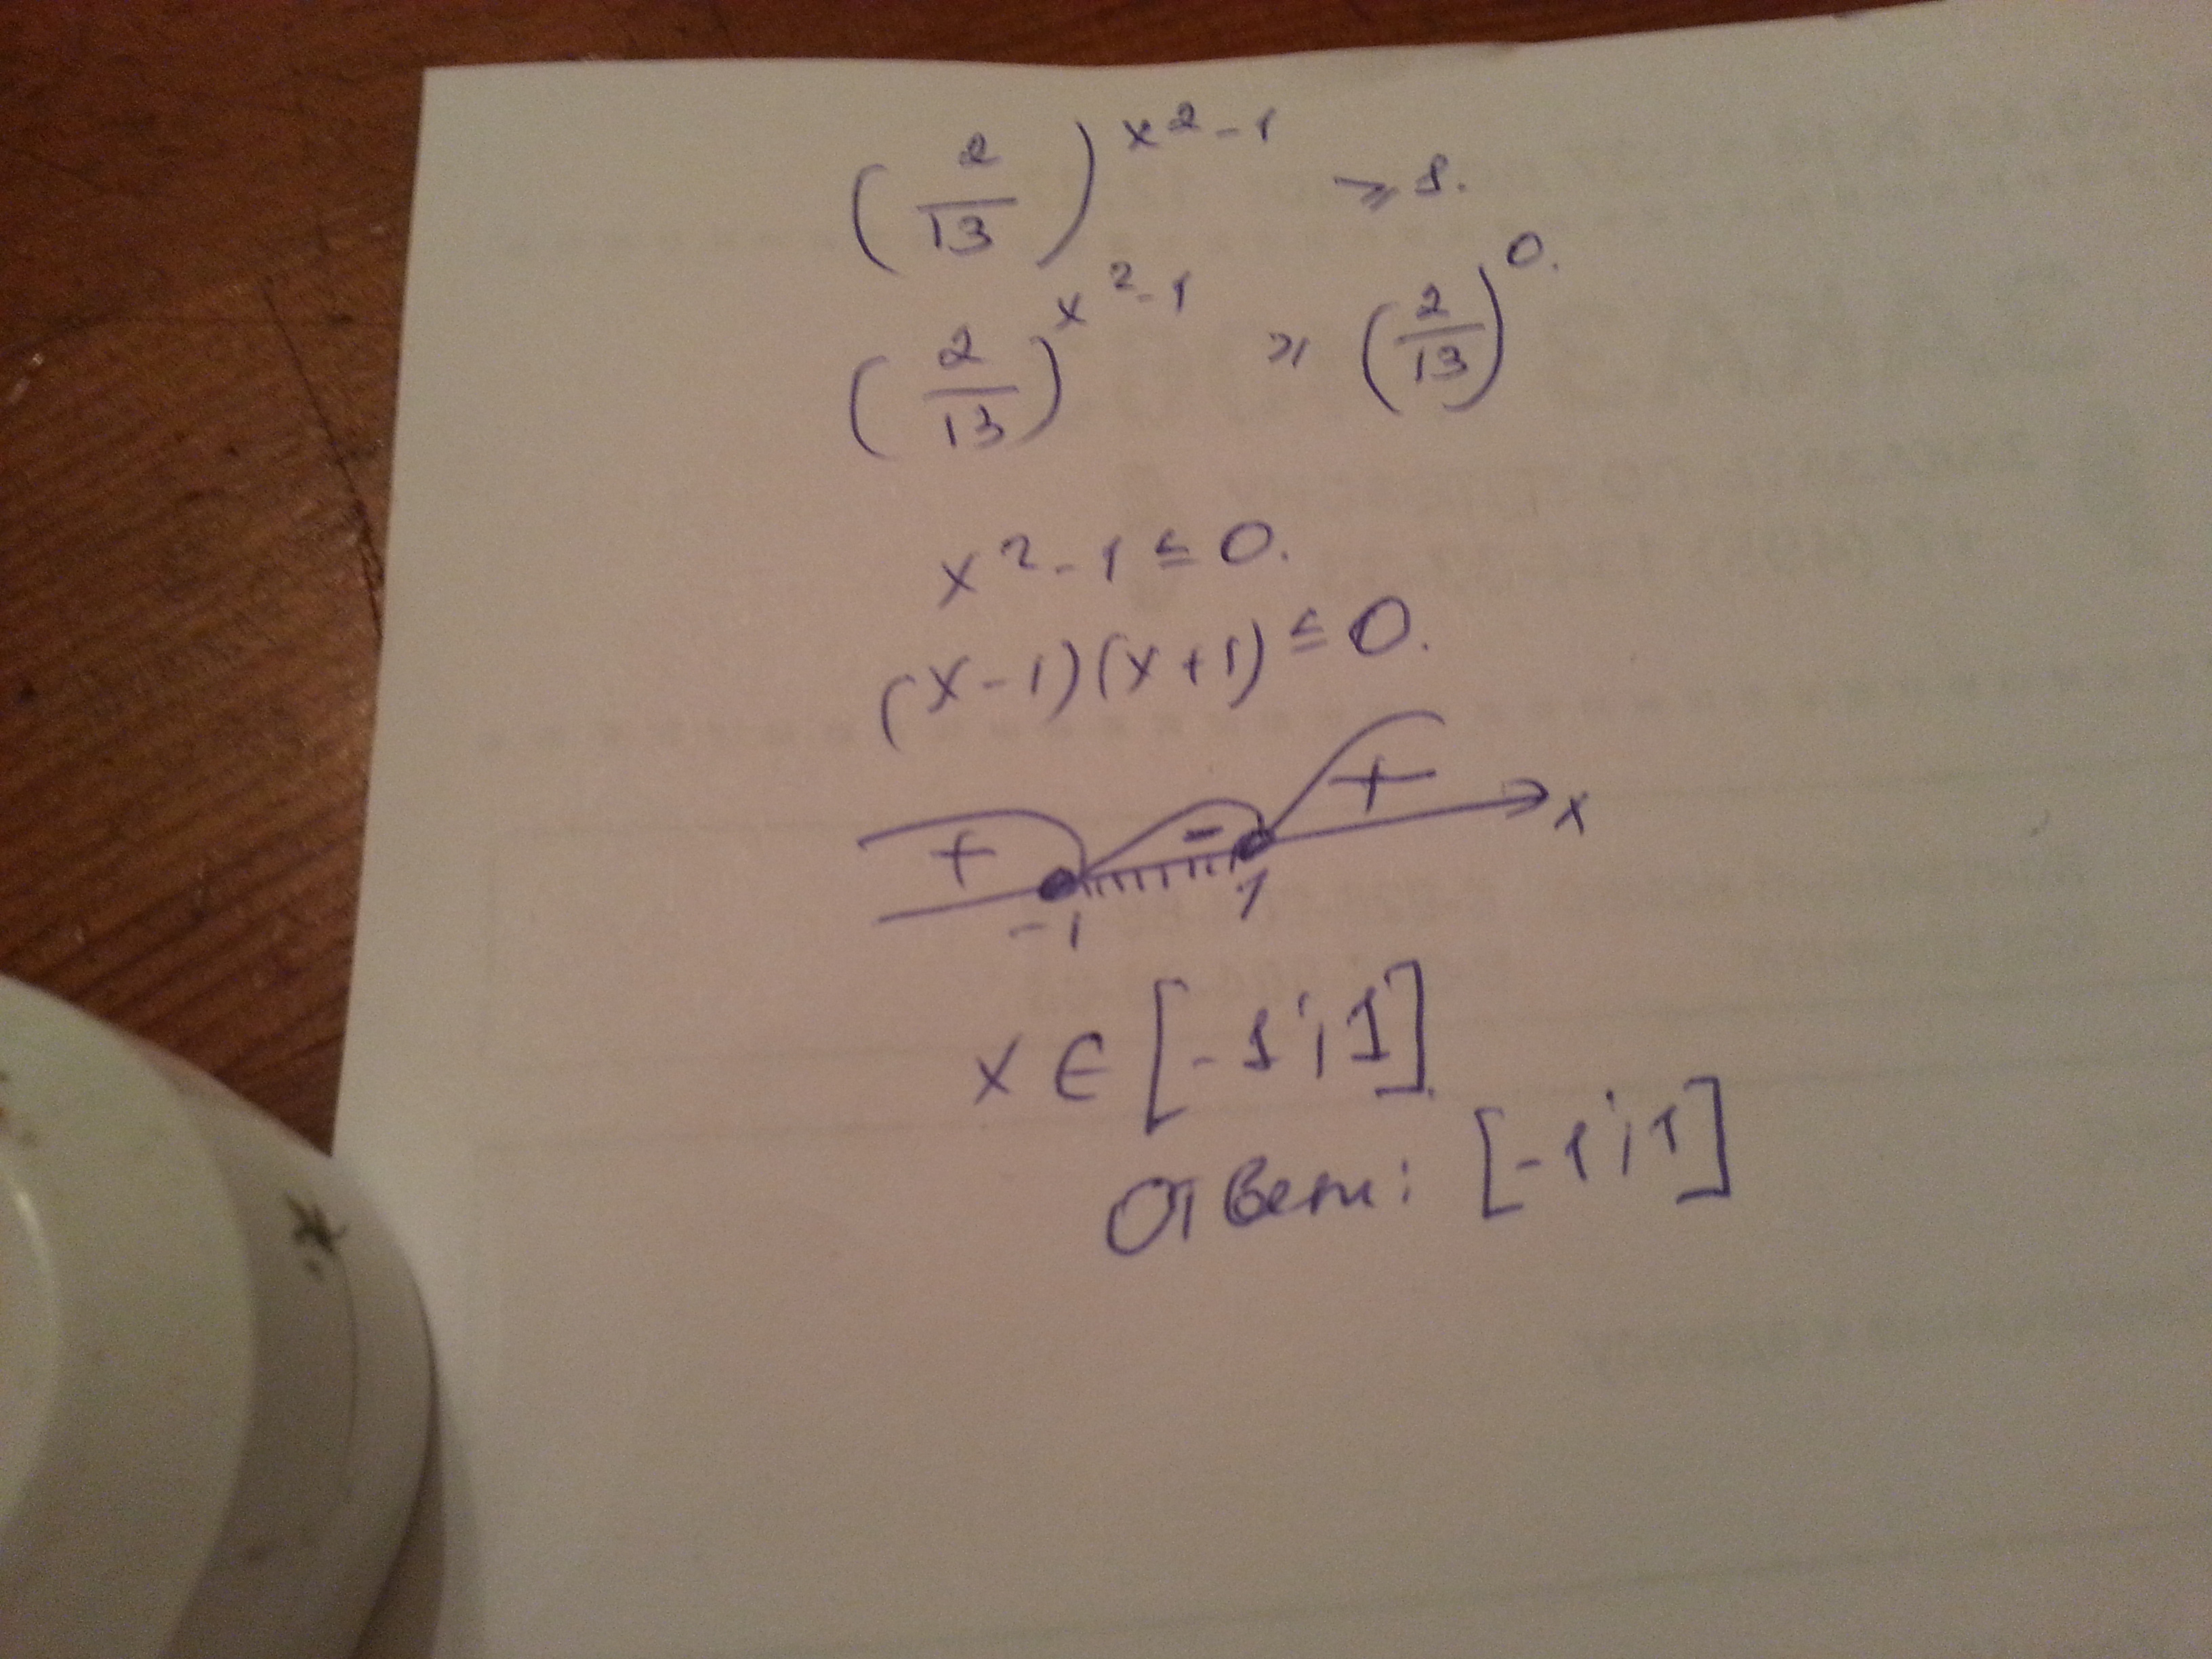 (2/13)^(x²-1) ⩾ 1.
(2/13)^(x²-1) ⩾ (2/13)^0.
x²-1 ≤ 0.
(x-1)(x+1) ≤ 0.
+ - + x
-1 1
x ∈ [-1;1]
Ответ: [-1;1]